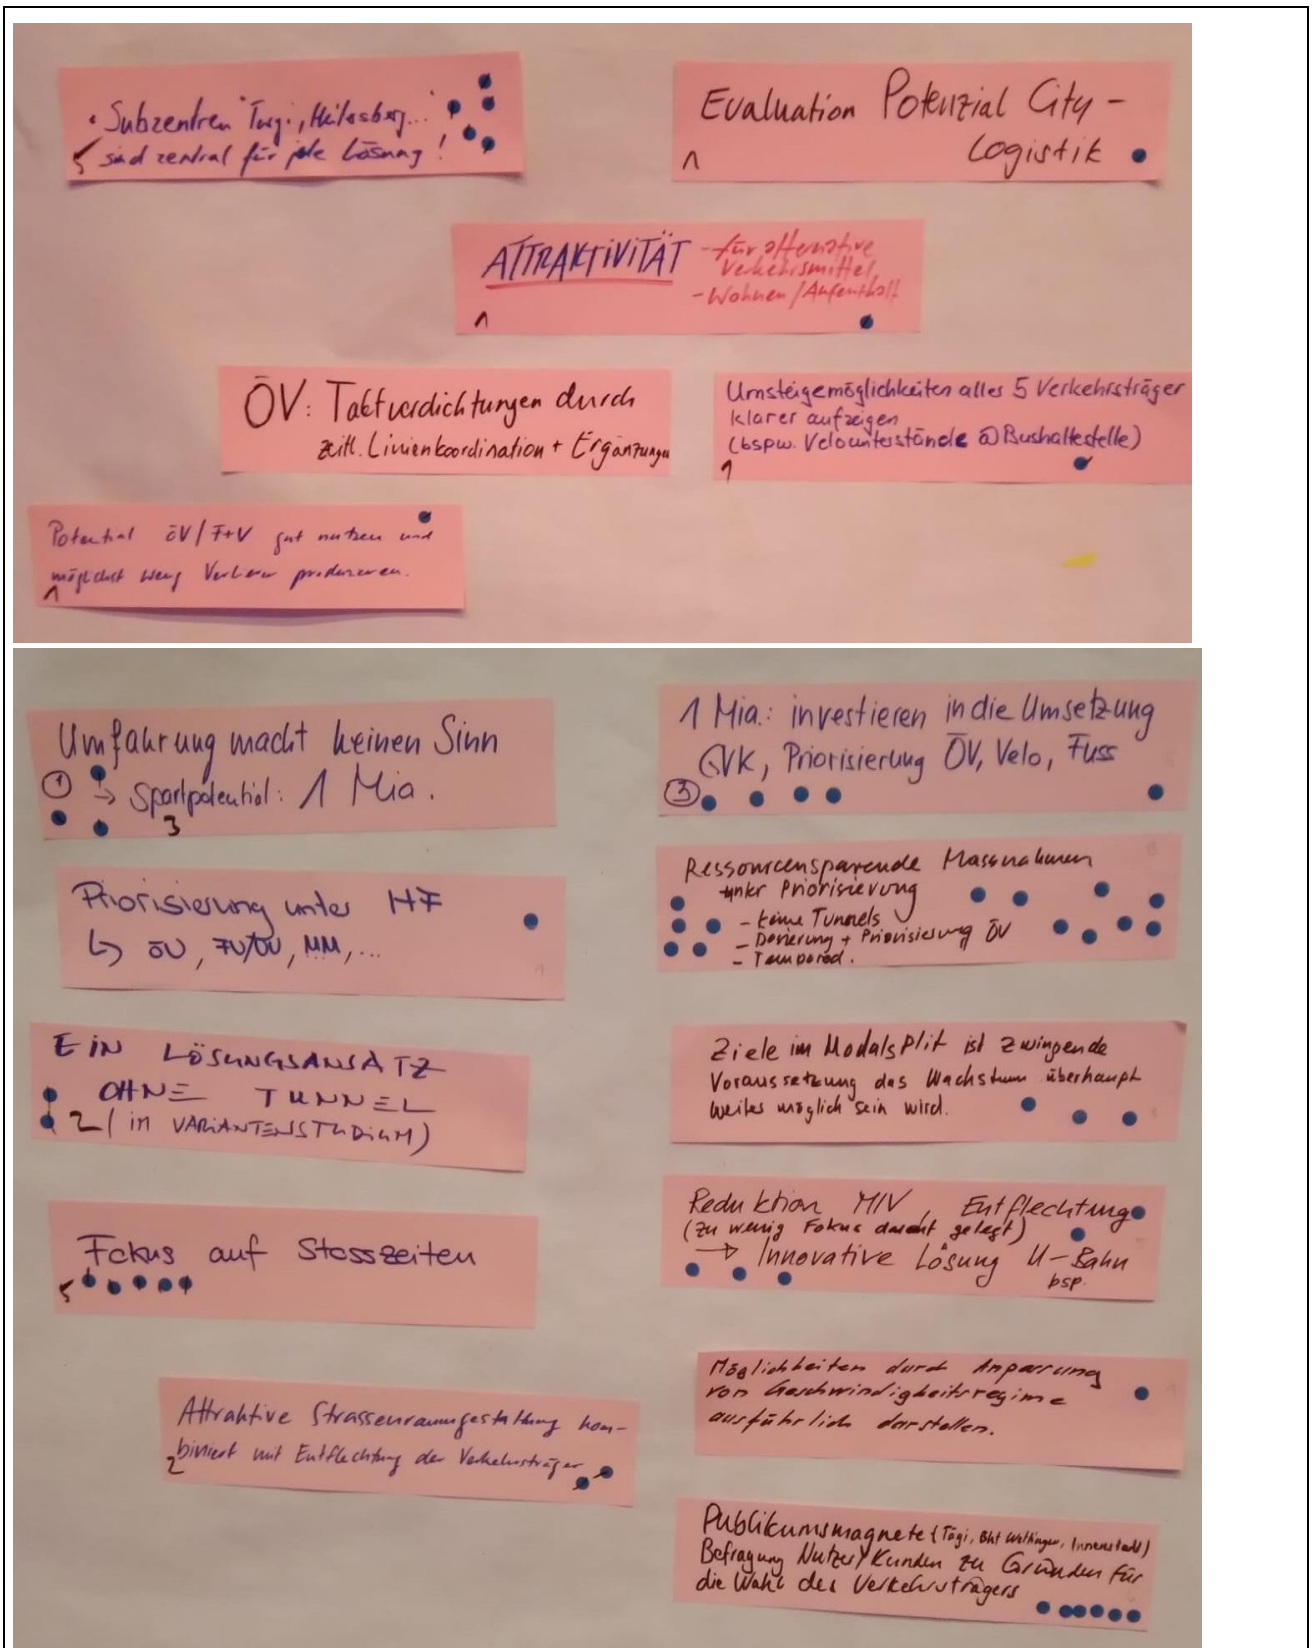 • Subzentren Turgi, ...
5 sind zentral für jede Lösung!
Evaluation Potenzial City-
Logistik
1
ATTRAKTIVITÄT
- für alternative
Verkehrsmittel
- Wohnen/Aufenthalt
1
ÖV: Taktverdichtungen durch
zeitl. Linienkoordination + Ergänzungen
Umsteigemöglichkeiten alles 5 Verkehrsträger
klarer aufzeigen
(bspw. Velounterstände @ Bushaltestelle)
1
Potential öV/F+V gut nutzen und
möglichst wenig Verlierer produzieren.
1
Umfahrung macht keinen Sinn
① → Sparpotential: 1 Mia.
3
Priorisierung unter HF
↳ ÖV, FV/ÖV, MM, ...
EIN LÖSUNGSANSATZ
OHNE TUNNEL
2 (im VARIANTENSTUDIUM)
Fokus auf Stosszeiten
5
Attraktive Strassenraumgestaltung kom-
biniert mit Entflechtung der Verkehrsträger
2
1 Mia.: investieren in die Umsetzung
GVK, Priorisierung ÖV, Velo, Fuss
③
Ressourcensparende Massnahmen
unter Priorisierung
- keine Tunnels
- Dosierung + Priorisierung ÖV
- Tempored.
Ziele im Modalsplit ist zwingende
Voraussetzung das Wachstum überhaupt
weiter möglich sein wird.
Reduktion MIV, Entflechtung
(zu wenig Fokus darauf gelegt)
→ Innovative Lösung U-Bahn
bsp.
Möglichkeiten durch Anpassung
von Geschwindigkeitsregime
ausführlich darstellen.
Publikumsmagnete (Tägi, Bhf Wettingen, Innenstadt)
Befragung Nutzer/Kunden zu Gründen für
die Wahl des Verkehrsträgers